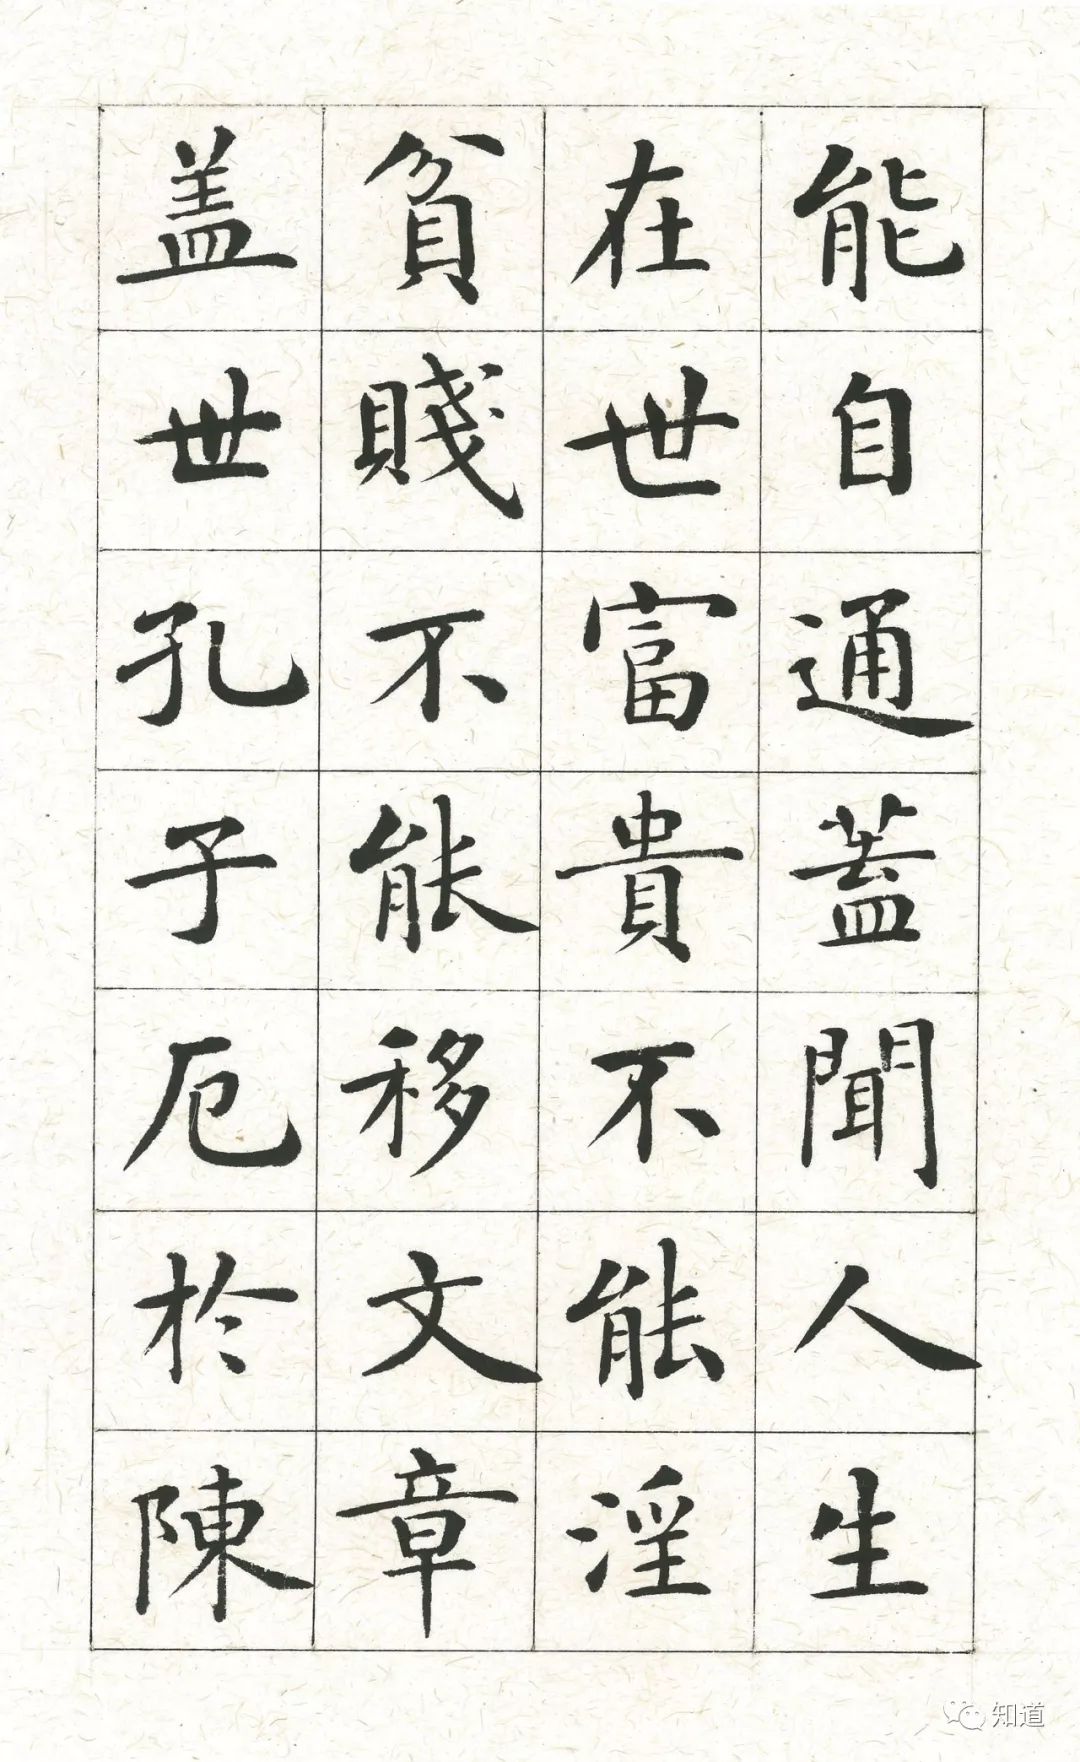 能自通蓋聞人生
在世富貴不能淫
貧賤不能移文章
盖世孔子厄於陳
知道